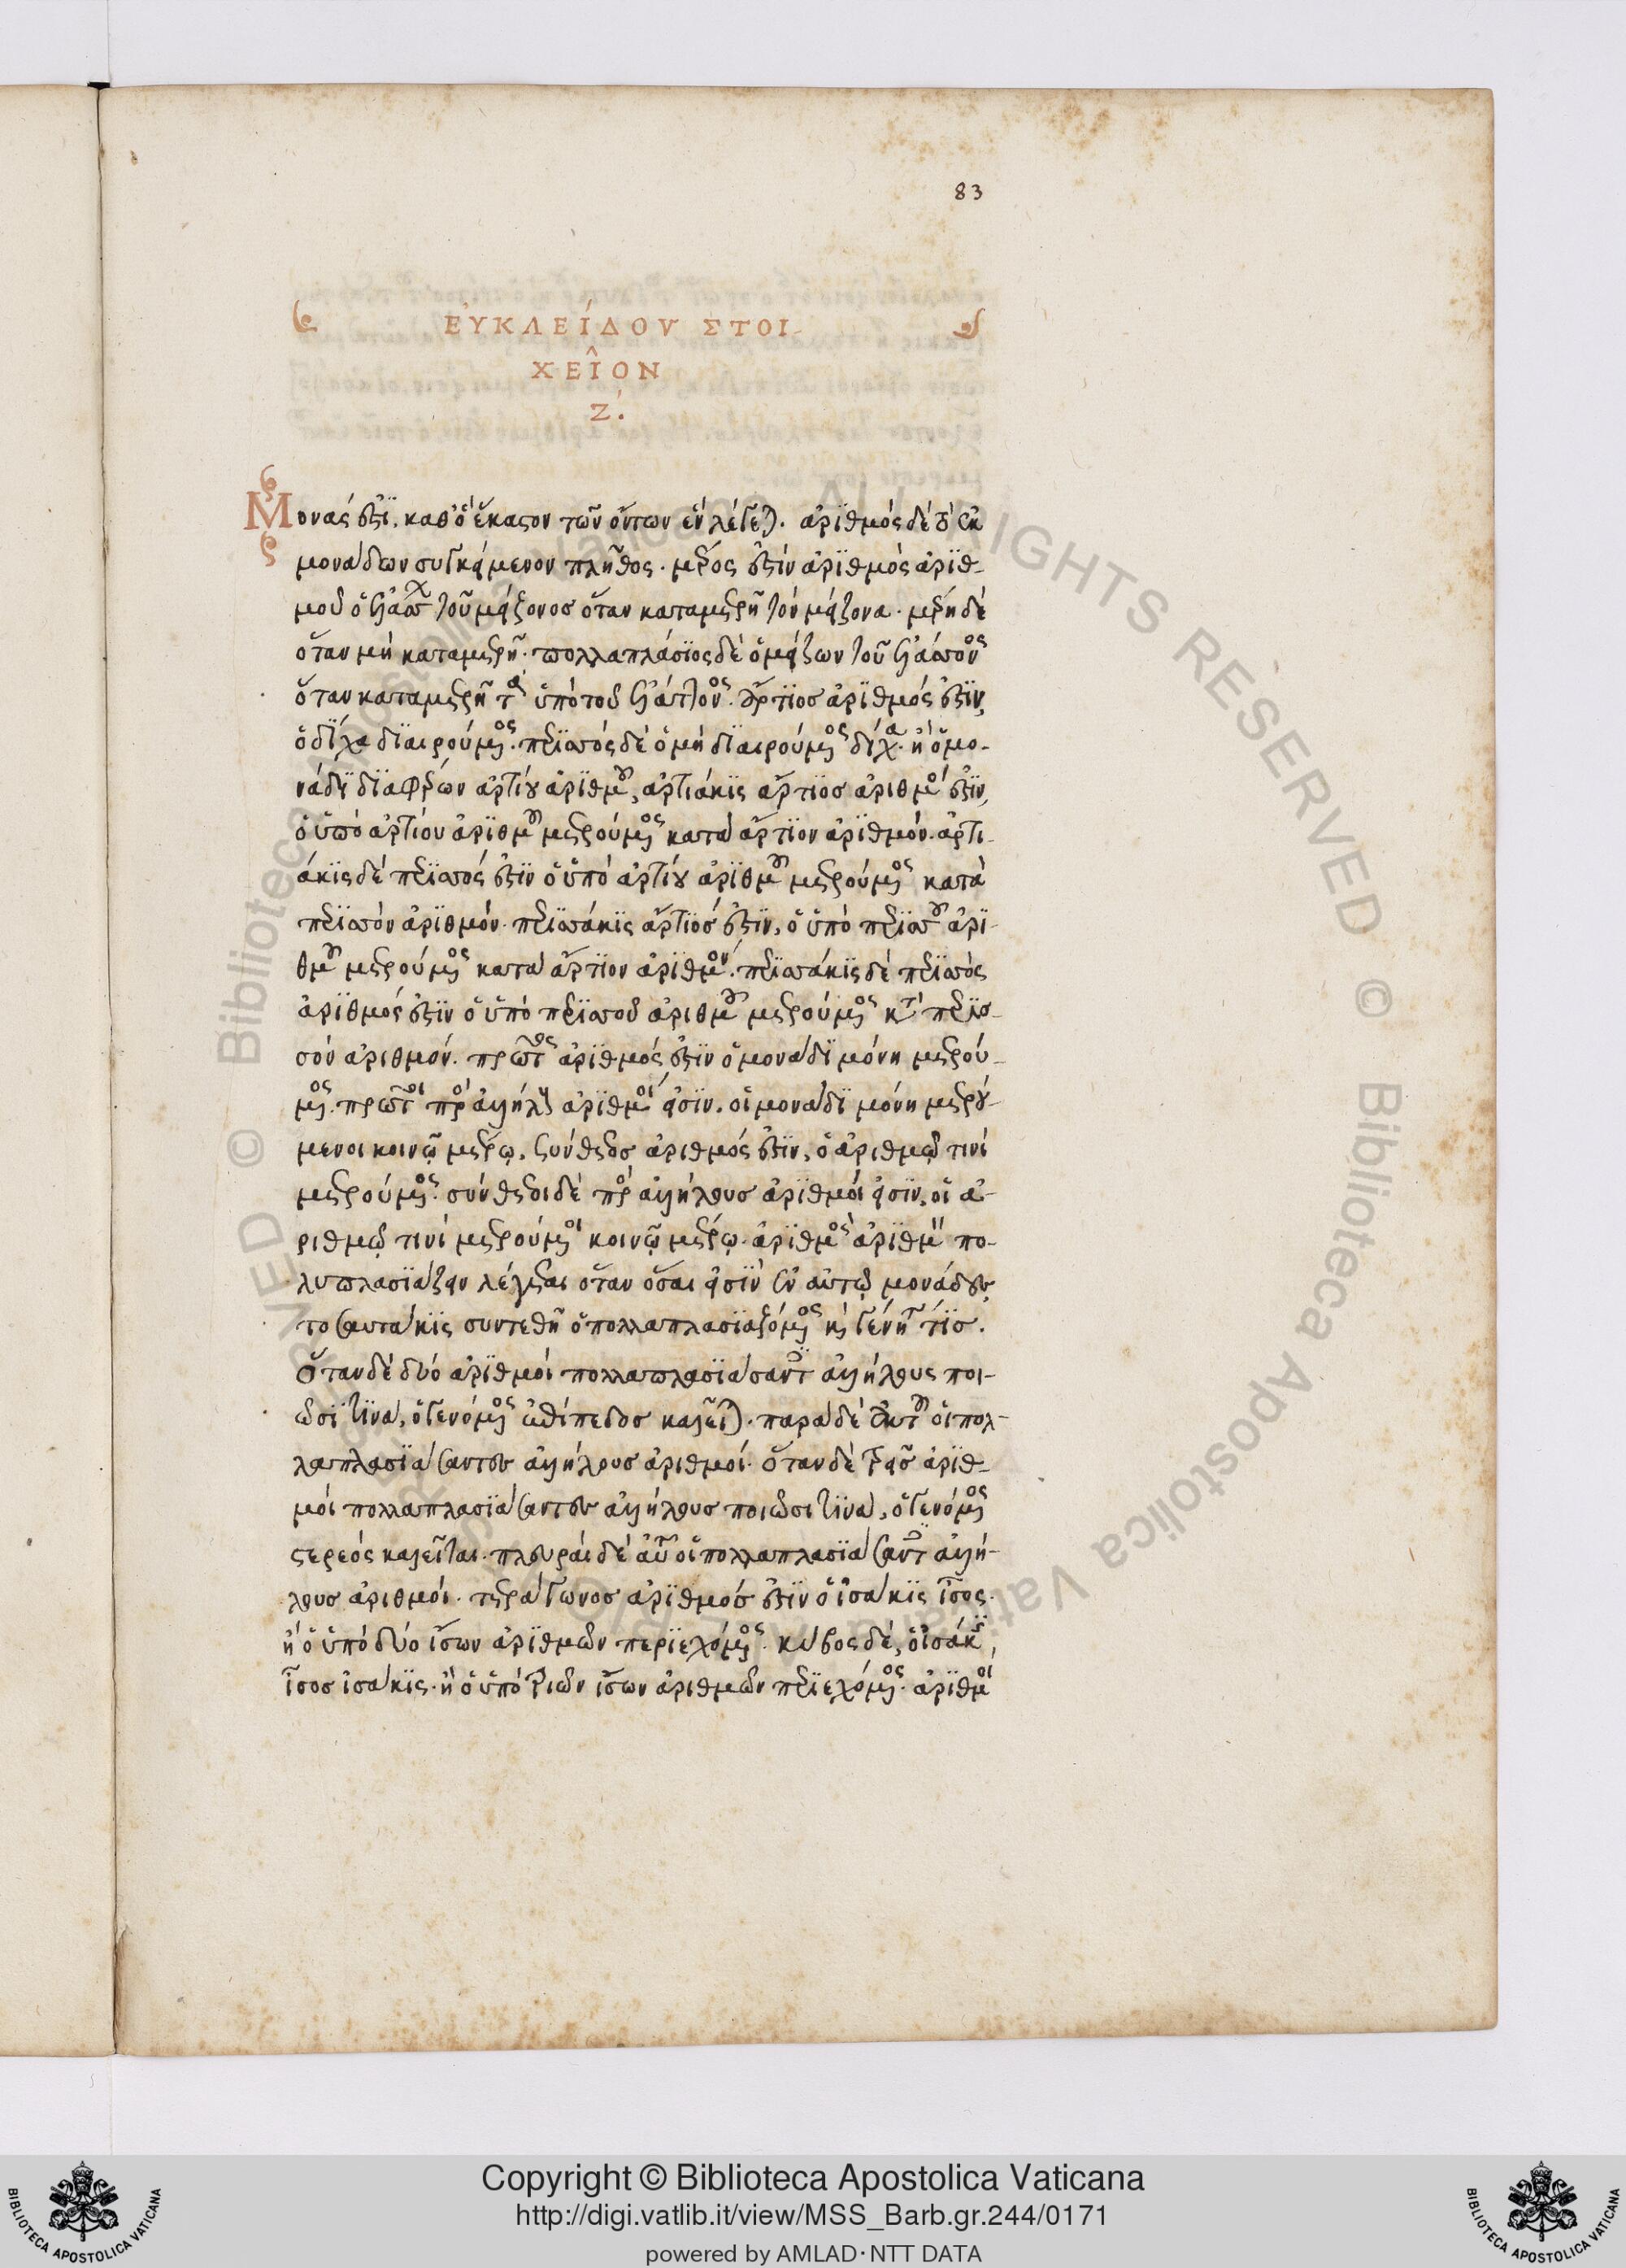 83
ΕΥΚΛΕΊΔΟΥ ΣΤΟΙ-
ΧΕῖΟΝ
Ζ.
Μονάς ἐστι, καθ' ὃ ἕκαστον τῶν ὄντων ἓν λέγεται. ἀριθμὸς δὲ τὸ ἐκ
μονάδων συγκείμενον πλῆθος. μέρος ἐστὶν ἀριθμὸς ἀριθ-
μοῦ ὁ ἐλάττων τοῦ μείζονος ὅταν καταμετρῇ τὸν μείζονα. μέρη δὲ
ὅταν μὴ καταμετρῇ. πολλαπλάσιος δὲ ὁ μείζων τοῦ ἐλάσσονος
ὅταν καταμετρῆται ὑπὸ τοῦ ἐλάττονος. ἄρτιος ἀριθμός ἐστιν,
ὁ δίχα διαιρούμενος. περισσὸς δὲ ὁ μὴ διαιρούμενος δίχα. ἢ ὁ μο-
νάδι διαφέρων ἀρτίου ἀριθμοῦ, ἀρτιάκις ἄρτιος ἀριθμός ἐστιν,
ὁ ὑπὸ ἀρτίου ἀριθμοῦ μετρούμενος κατὰ ἄρτιον ἀριθμόν. ἀρτι-
άκις δὲ περισσός ἐστιν ὁ ὑπὸ ἀρτίου ἀριθμοῦ μετρούμενος κατὰ
περισσὸν ἀριθμόν. περισσάκις ἄρτιός ἐστιν, ὁ ὑπὸ περισσοῦ ἀρι-
θμοῦ μετρούμενος κατὰ ἄρτιον ἀριθμόν. περισσάκις δὲ περισσὸς
ἀριθμός ἐστιν ὁ ὑπὸ περισσοῦ ἀριθμοῦ μετρούμενος κατὰ περισ-
σὸν ἀριθμόν. πρῶτος ἀριθμός ἐστιν ὁ μονάδι μόνῃ μετρού-
μενος. πρῶτοι πρὸς ἀλλήλους ἀριθμοί εἰσιν, οἱ μονάδι μόνῃ μετρού-
μενοι κοινῷ μέτρῳ, σύνθετος ἀριθμός ἐστιν, ὁ ἀριθμῷ τινὶ
μετρούμενος. σύνθετοι δὲ πρὸς ἀλλήλους ἀριθμοί εἰσιν, οἱ ἀ-
ριθμῷ τινὶ μετρούμενοι κοινῷ μέτρῳ. ἀριθμὸς ἀριθμὸν πο-
λυπλασιάζειν λέγεται ὅταν ὅσαι εἰσὶν ἐν αὐτῷ μονάδες,
τοσαυτάκις συντεθῇ ὁ πολλαπλασιαζόμενος καὶ γένηταί τις.
Ὅταν δὲ δύο ἀριθμοὶ πολλαπλασιάσαντες ἀλλήλους ποι-
ῶσί τινα, ὁ γενόμενος ἐπίπεδος καλεῖται. παρὰ δὲ αὐτοῦ οἱ πολ-
λαπλασιάσαντες ἀλλήλους ἀριθμοί. Ὅταν δὲ τρεῖς ἀριθ-
μοὶ πολλαπλασιάσαντες ἀλλήλους ποιῶσι τινά, ὁ γενόμενος
στερεός καλεῖται. πλευραὶ δὲ αὐτοῦ οἱ πολλαπλασιάσαντες ἀλλή-
λους ἀριθμοί. τετράγωνος ἀριθμός ἐστιν ὁ ἰσάκις ἴσος.
ἢ ὁ ὑπὸ δύο ἴσων ἀριθμῶν περιεχόμενος. κύβος δέ, ὁ ἰσάκις
ἴσος ἰσάκις. ἢ ὁ ὑπὸ τριῶν ἴσων ἀριθμῶν περιεχόμενος. ἀριθμοὶ
Copyright © Biblioteca Apostolica Vaticana
http://digi.vatlib.it/view/MSS_Barb.gr.244/0171
powered by AMLAD·NTT DATA
BIBLIOTECA APOSTOLICA VATICANA
BIBLIOTECA APOSTOLICA VATICANA